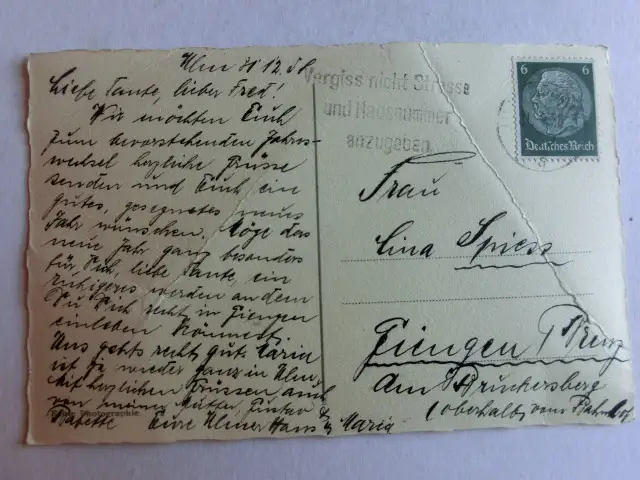 Ulm 31.12.38.
Liebe Tante, lieber Fred!
Wir möchten Euch
zum bevorstehenden Jahres-
wechsel herzliche Grüsse
senden und Euch ein
gutes, gesegnetes neues
Jahr wünschen. Möge das
neue Jahr ganz besonders
für Dich, liebe Tante, ein
ruhigeres werden an dem
Du Dich recht in Giengen
einleben kannst.
Uns gehts recht gut. Maria
ist ja wieder ganz in Ulm.
Mit herzlichen Grüssen auch
von meiner Mutter, Gustav &
Babette Eure Ulmer Hans & Maria
Photographie
Vergiss nicht Strasse
und Hausnummer
anzugeben
6 6
Deutsches Reich
Frau
Lina Spiess
Giengen / Brenz
Am Bruckersberg
(oberhalb vom Bahnhof